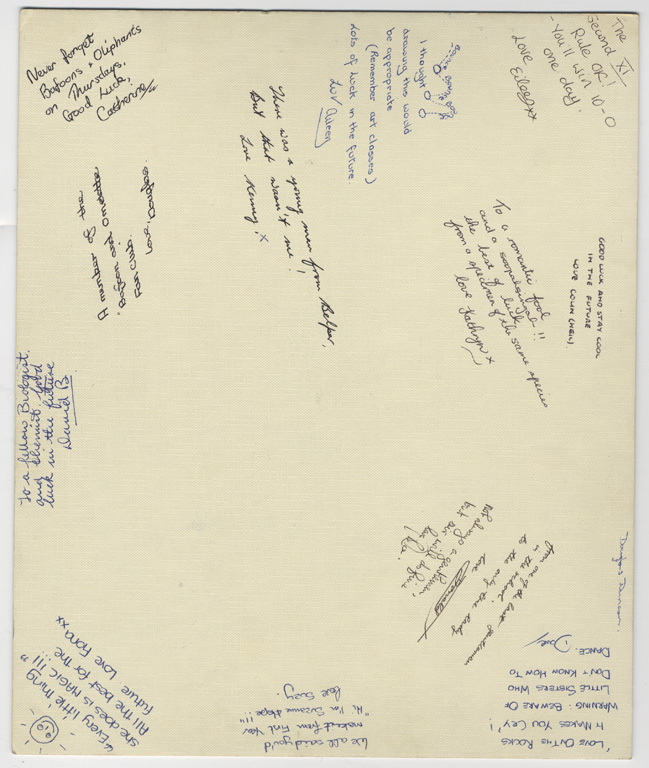 Never forget
Bafoons + Oliphants
on Thursdays.
Good Luck,
Catherine
I thought
drawing this would
be appropriate
(Remember art classes)
Lots of luck in the future.
Luv Aileen
The
Second XI
Rule OK!
- You'll win 10-0
one day.
Love
Eileen xx
There was a young man from Belper.
But that wasn't me!
Love Kenny. x
A member of the
Bafoon and Omelette
Fan Club.
Love, Douglas.
To a romantic fool
and a
the best of luck
from a specimen of the same species
love Kathryn x
GOOD LUCK AND STAY COOL
IN THE FUTURE
LOVE COLIN (HEIN).
To a fellow Biologist
and Chemist, Good
luck in the future
David B
Not always a gentleman,
but
from one of the last gentlemen
in the school
to the only true lady
love
Douglas Duncan.
'LOVE ON THE ROCKS
IT MAKES YOU CRY'!
WARNING: BEWARE OF
LITTLE SISTERS WHO
DON'T KNOW HOW TO
DANCE.
We all said you'd
makeit from First Year
"Hi, I'm Suzanne
Love Suzy.
"Every little thing
she does is MAGIC!!!"
All the best for the
future Love Fiona xx